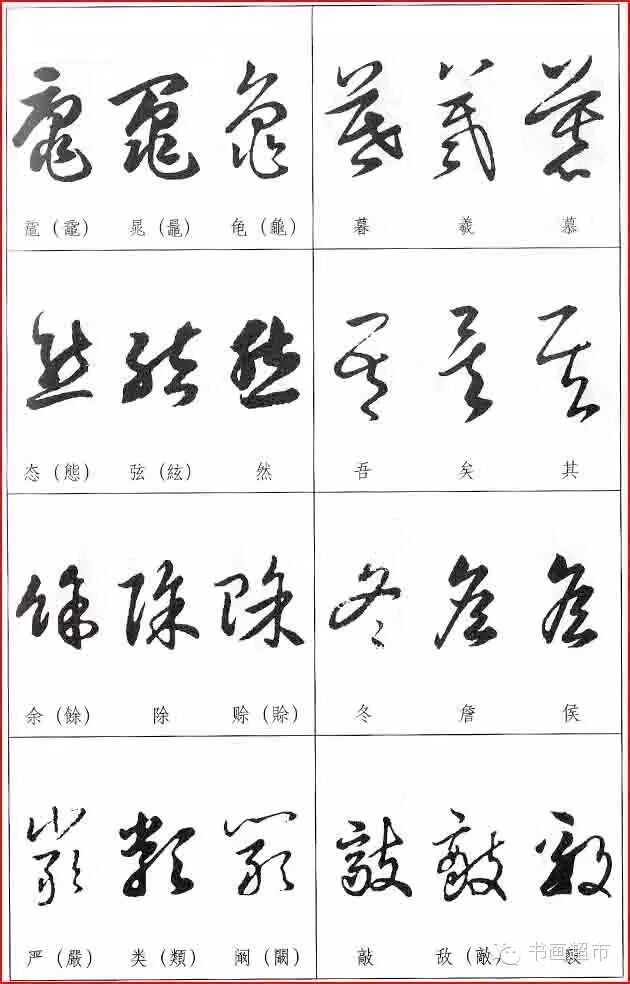 晁（鼂） 龟（龜） 暮 羲 慕
态（態） 弦（絃） 然 吾 矣 其
余（餘） 除 赊（賒） 冬 詹 侯
严（嚴） 类（類） 阚（闞） 敲 敌（敵）
书画超市